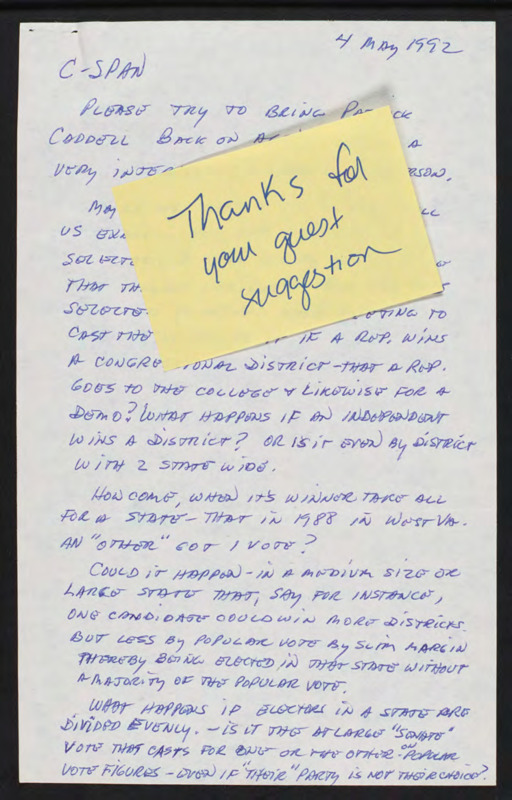 4 MAY 1992
C-SPAN
PLEASE TRY TO BRING PA CK
CADDELL BACK ON A
VERY INTE RSON.
MA LL
US EX
SELECTE
THAT TH
SELECTE OTING TO
CAST THE IF A REP. WINS
A CONGRE IONAL DISTRICT - THAT A REP.
GOES TO THE COLLEGE & LIKEWISE FOR A
DEMO? WHAT HAPPENS IF AN INDEPENDENT
WINS A DISTRICT? OR IS IT EVEN BY DISTRICT
WITH 2 STATE WIDE.
HOW COME, WHEN IT'S WINNER TAKE ALL
FOR A STATE - THAT IN 1988 IN WEST VA.
AN "OTHER" GOT 1 VOTE?
COULD IT HAPPEN - IN A MEDIUM SIZE OR
LARGE STATE THAT, SAY FOR INSTANCE,
ONE CANDIDATE COULD WIN MORE DISTRICTS
BUT LESS BY POPULAR VOTE BY SLIM MARGIN
THEREBY BEING ELECTED IN THAT STATE WITHOUT
A MAJORITY OF THE POPULAR VOTE.
WHAT HAPPENS IF ELECTORS IN A STATE ARE
DIVIDED EVENLY. - IS IT THE AT LARGE "SENATE"
VOTE THAT CASTS FOR ONE OR THE OTHER - ON POPULAR
VOTE FIGURES - EVEN IF "THEIR" PARTY IS NOT THEIR CHOICE?
Thanks for
your guest
suggestion